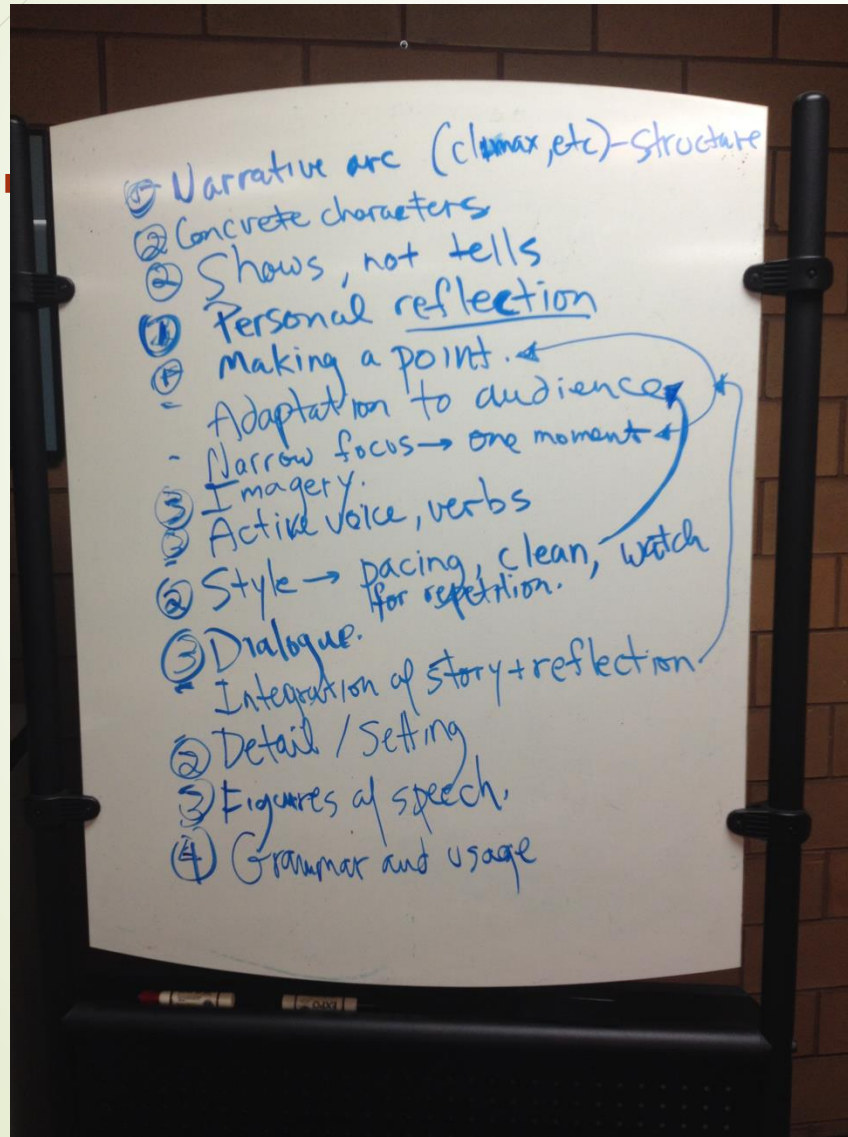 ① Narrative arc (climax, etc) - structure
② Concrete characters
② Shows, not tells
① Personal reflection
① Making a point.
- Adaptation to audience
- Narrow focus → one moment
③ Imagery.
③ Active voice, verbs
② Style → pacing, clean, watch
for repetition.
③ Dialogue.
- Integration of story + reflection
② Detail / Setting
③ Figures of speech.
④ Grammar and usage
EXPO